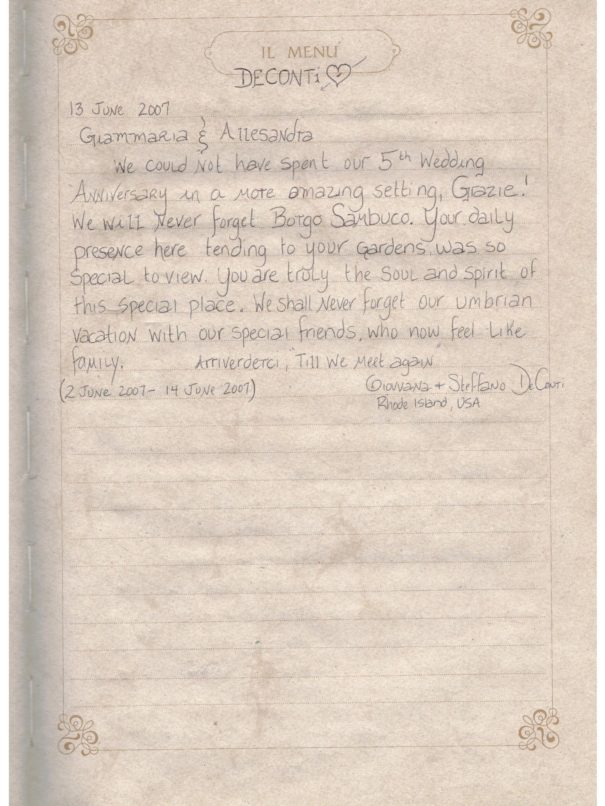 IL MENU
DECONTI
13 June 2007
Giammaria & Allesandra
We could Not have spent our 5th Wedding
Anniversary in a more amazing setting, Grazie!
We will Never forget Borgo Sambuco. Your daily
presence here tending to your gardens, was so
special to view. You are truly the soul and spirit of
this special place. We shall Never forget our umbrian
vacation with our special friends, who now feel like
family. Arriverderci, 'Till we meet again
(2 June 2007 - 14 June 2007) Giovvana + Steffano DeConti
Rhode Island, USA